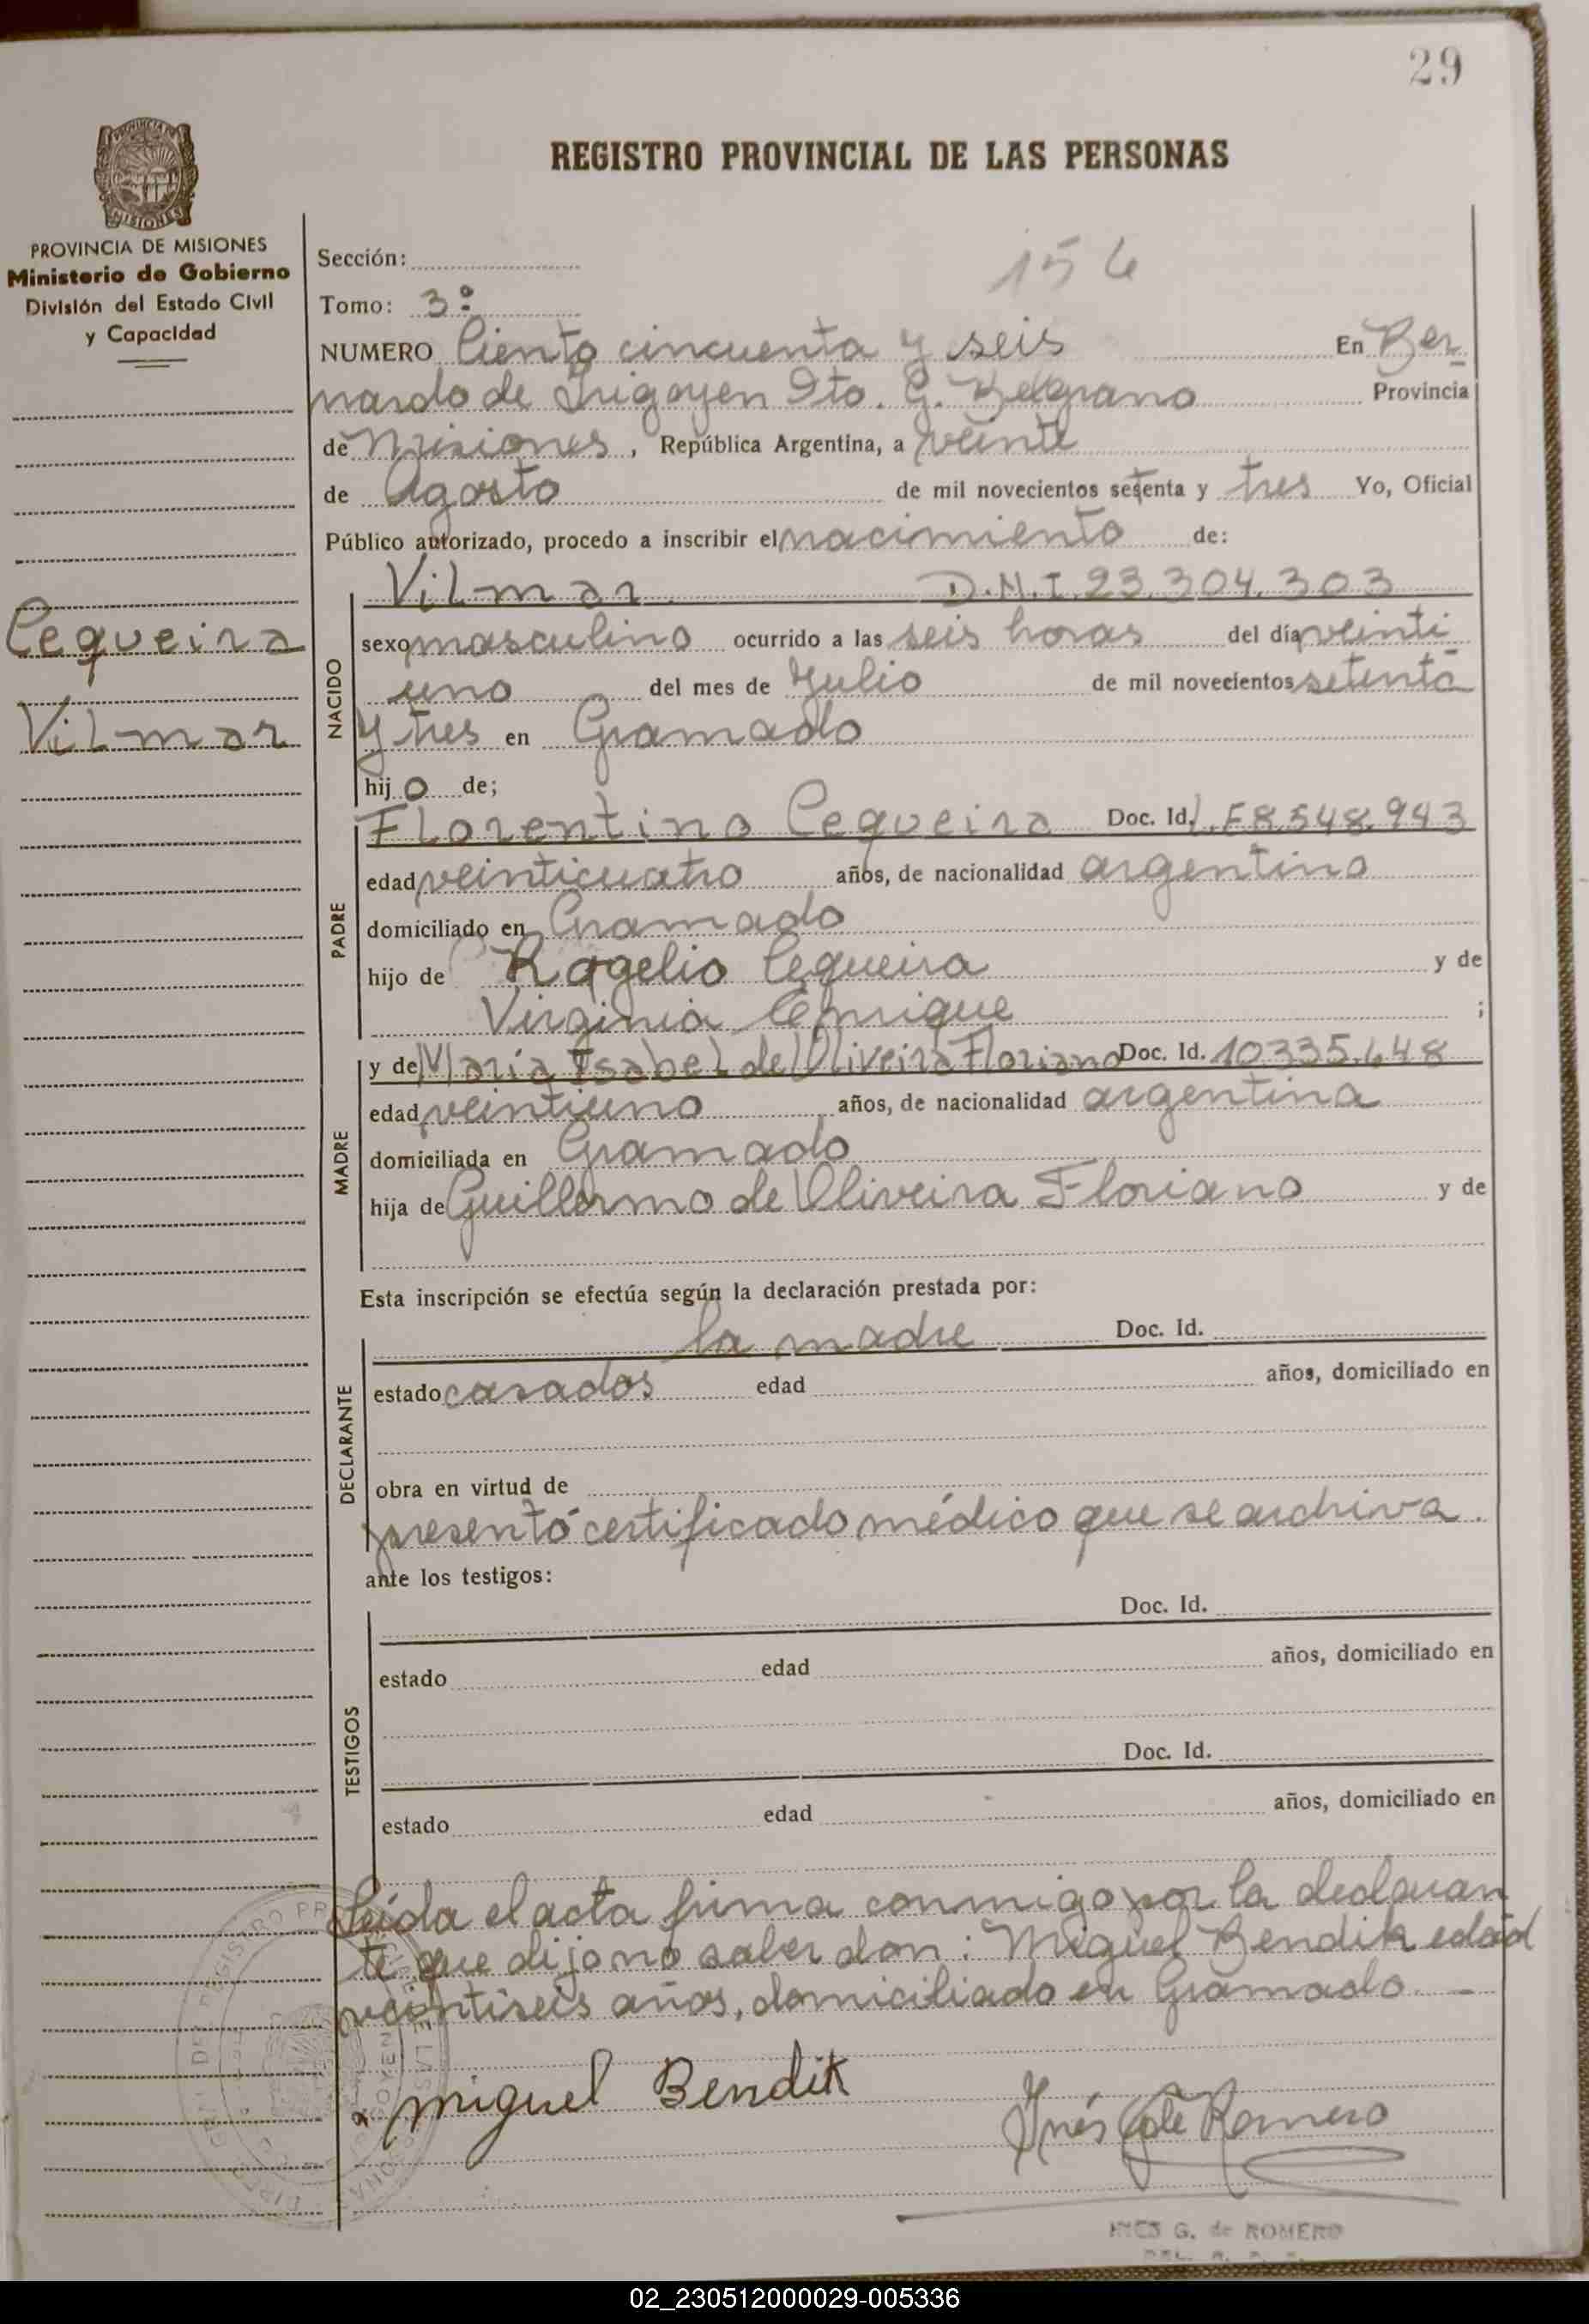 29
REGISTRO PROVINCIAL DE LAS PERSONAS
PROVINCIA DE MISIONES
Ministerio de Gobierno
División del Estado Civil
y Capacidad
Cequeira
Vilmar
Sección:
156
Tomo: 3º
NUMERO Ciento cincuenta y seis En Ber
nardo de Irigoyen Dto. G. Belgrano Provincia
de Misiones, República Argentina, a veinte
de Agosto de mil novecientos setenta y tres Yo, Oficial
Público autorizado, procedo a inscribir el nacimiento de:
NACIDO
Vilmar D.N.I. 23.304.303
sexo masculino ocurrido a las seis horas del día veinti
uno del mes de Julio de mil novecientos setenta
y tres en Gramado
hijo de;
PADRE
Florentino Cequeira Doc. Id. L.E 8.548.943
edad veinticuatro años, de nacionalidad argentino
domiciliado en Gramado
hijo de Rogelio Cequeira y de
Virginia ;
MADRE
y de María Isabel de Oliveira Floriano Doc. Id. 10.335.648
edad veintiuno años, de nacionalidad argentina
domiciliada en Gramado
hija de Guillermo de Oliveira Floriano y de
Esta inscripción se efectúa según la declaración prestada por:
DECLARANTE
la madre Doc. Id.
estado casados edad años, domiciliado en
obra en virtud de
presentó certificado médico que se archiva.
ante los testigos:
TESTIGOS
Doc. Id.
estado edad años, domiciliado en
Doc. Id.
estado edad años, domiciliado en
Leída el acta firma conmigo por la declaran
te que dijo no saber don: Miguel Bendik edad
veintiseis años, domiciliado en Gramado. -
miguel Bendik
Inés G de Romero
INES G. de ROMERO
02_230512000029-005336